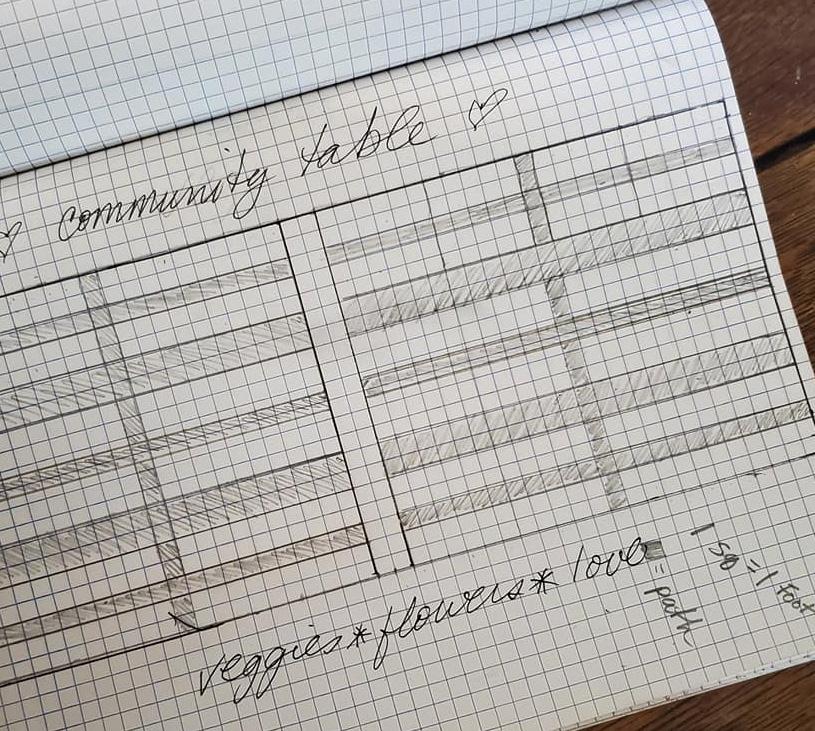 ♡ community table ♡
veggies*flowers*love
= path
1 sq = 1 Foot